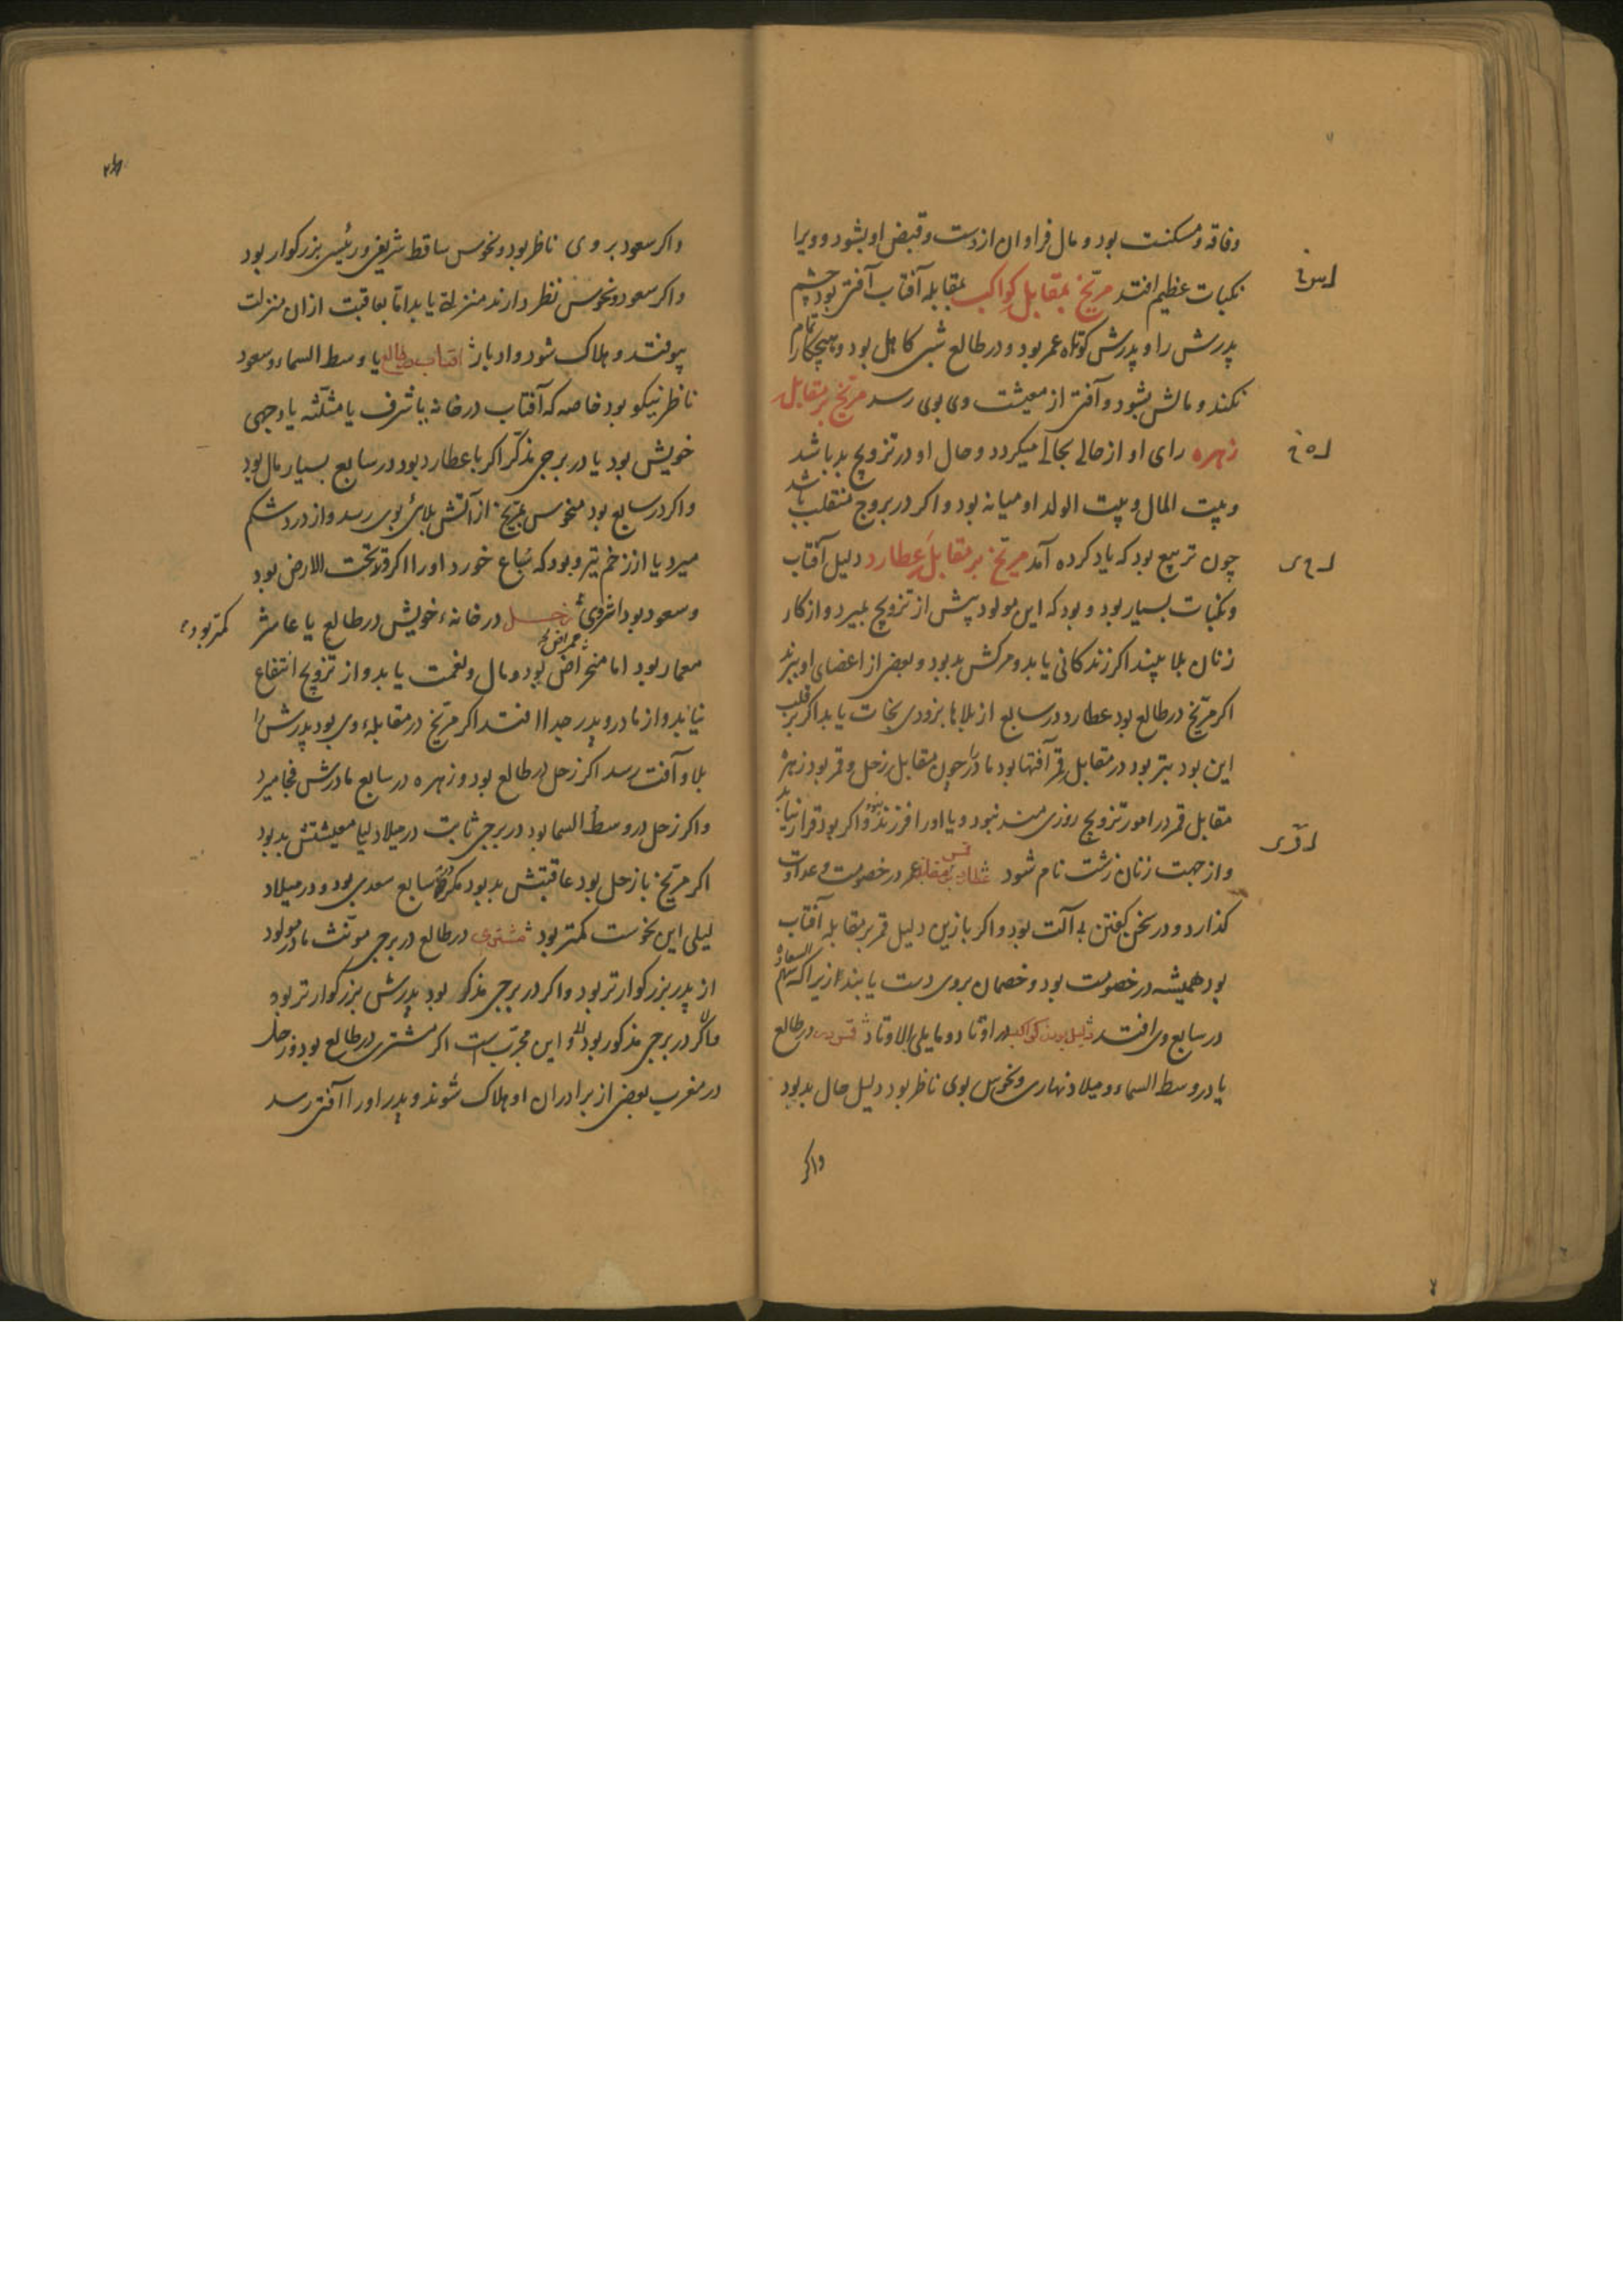 وفاقه و مسکنت بود و مال فراوان از دست و قبض او بشود و ویرا
نکبات عظیم افتد مریخ بمقابل کواکب بمقابله آفتاب آفتی بود چشم
پدرش را و پدرش کوتاه عمر بود و در طالع شبی کاهل بود و هیچ کار تمام
نکند و مالش بشود و آفتی از معیشت وی بوی رسد مریخ بر مقابل
زهره رای او از حالی بحالی میکردد و حال او در تزویج بد باشد
و بیت المال و بیت الولد او میانه بود و اکر در بروج منقلب باشد
چون تربیع بود که یاد کرده آمد مریخ بر مقابل عطارد دلیل آفتاب
و نکبات بسیار بود و بود که این مولود پیش از تزویج بمیرد و از کار
زنان بلا بیند اکر زندکانی یابد و مرکش بد بود و بعضی از اعضای او ببرند
اکر مریخ در طالع بود عطارد در سابع از بلاها بزودی نجات یابد اکر بر قلب
این بود بتر بود در مقابل قمر آفتها بود مادر را چون مقابل زحل و قمر بود زهره
مقابل قمر در امور تزویج روزی مند نبود و یا او را فرزند نبود و اکر بود قرار نیابد
و از جهت زنان زشت نام شود عطارد بمقابله قمر عمر در خصومت و عداوت
کذارد و در سخن کفتن بی آلت بود و اکر بازین دلیل قمر بمقابله آفتاب
بود همیشه در خصومت بود و خصمان بروی دست یابند زیرا که سهم السعاده
در سابع وی افتد کواکب در اوتاد و ما یلی الاوتاد در طالع
یا در وسط السماء و میلاد نهاری و نحوس بوی ناظر بود دلیل حال بد بود
واکر
واکر سعود بروی ناظر بود و نحوس ساقط شریفی و رئیسی بزرکوار بود
واکر سعود و نحوس نظر دارند منزلة یابد اما بعاقبت از ان منزلت
بیوفتد و هلاک شود و ادبار آفتاب در طالع یا وسط السماء و سعود
ناظر نیکو بود خاصه که آفتاب در خانه یا شرف یا مثلثه یا وجهی
خویش بود یا در برجی مذکر اکر با عطارد بود در سابع بسیار مال بود
واکر در سابع بود منحوس بمریخ از آتش بلائی بوی رسد و از درد شکم
میرد یا از زخم تیر و بود که سباع خورد او را اکر تحت الارض بود
و سعود بود زحل در خانه خویش در طالع یا عاشر
کمتر بود
معمار بود اما بود و مال و نعمت یابد و از تزویج انتفاع
نیابد و از مادر و پدر جدا افتد اکر مریخ در مقابله وی بود پدرش را
بلا و آفت رسد اکر زحل در طالع بود و زهره در سابع مادرش فجا میرد
واکر زحل در وسط السما بود در برجی ثابت در میلاد لیلی معیشتش بد بود
اکر مریخ با زحل بود عاقبتش بد بود مکر که در سابع سعدی بود و در میلاد
لیلی این نحوست کمتر بود مشتری در طالع در برجی مونث مادر مولود
از پدر بزرکوارتر بود و اکر در برجی مذکر بود پدرش بزرکوارتر بود
در برجی مذکور بود و این مجرب است اکر مشتری در طالع بود و زحل
در مغرب بعضی از برادران او هلاک شوند و پدر او را آفتی رسد